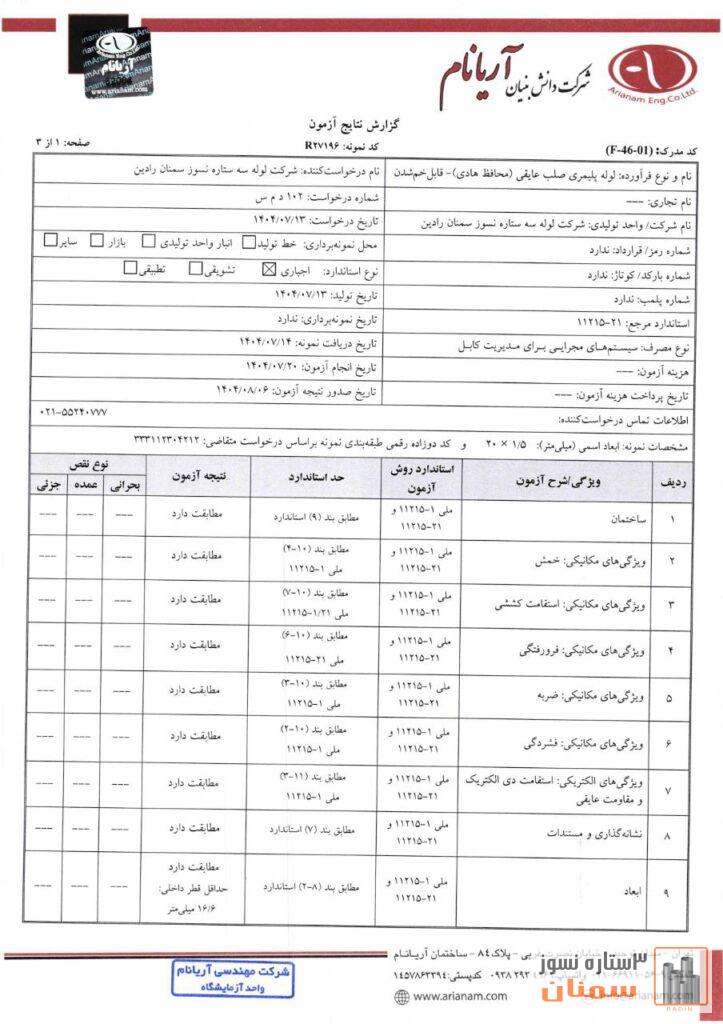 آریانام
www.arianam.com
شرکت دانش بنیان آریانام
Arianam Eng.Co.Ltd.
گزارش نتایج آزمون
کد مدرک: (F-46-01)
کد نمونه: R۲۷۱۹۶
صفحه: ۱ از ۳
نام و نوع فرآورده: لوله پلیمری صلب عایقی (محافظ هادی)- قابل‌خم‌شدن
نام درخواست‌کننده: شرکت لوله سه ستاره نسوز سمنان رادین
نام تجاری: ---
شماره درخواست: ۱۰۲ د م س
نام شرکت/ واحد تولیدی: شرکت لوله سه ستاره نسوز سمنان رادین
تاریخ درخواست: ۱۴۰۴/۰۷/۱۳
شماره رمز/ قرارداد: ندارد
محل نمونه‌برداری: خط تولید انبار واحد تولیدی بازار سایر
شماره بارکد/ کوتاژ: ندارد
نوع استاندارد: اجباری تشویقی تطبیقی
شماره پلمپ: ندارد
تاریخ تولید: ۱۴۰۴/۰۷/۱۳
استاندارد مرجع: ۲۱-۱۱۲۱۵
تاریخ نمونه‌برداری: ندارد
نوع مصرف: سیستم‌های مجرایی برای مدیریت کابل
تاریخ دریافت نمونه: ۱۴۰۴/۰۷/۱۴
هزینه آزمون: ---
تاریخ انجام آزمون: ۱۴۰۴/۰۷/۲۰
تاریخ پرداخت هزینه آزمون: ---
تاریخ صدور نتیجه آزمون: ۱۴۰۴/۰۸/۰۶
اطلاعات تماس درخواست‌کننده:
۰۲۱-۵۵۲۴۰۷۷۷
مشخصات نمونه: ابعاد اسمی (میلی‌متر): ۱/۵ × ۲۰ و کد دوازده رقمی طبقه‌بندی نمونه براساس درخواست متقاضی: ۳۳۳۱۱۲۳۰۴۲۱۲
ردیف ویژگی/شرح آزمون استاندارد روش آزمون حد استاندارد نتیجه آزمون نوع نقص
بحرانی عمده جزئی
۱ ساختمان ملی ۱-۱۱۲۱۵ و ۲۱-۱۱۲۱۵ مطابق بند (۹) استاندارد مطابقت دارد --- --- ---
۲ ویژگی‌های مکانیکی: خمش ملی ۱-۱۱۲۱۵ و ۲۱-۱۱۲۱۵ مطابق بند (۱۰-۴) ملی ۱-۱۱۲۱۵ مطابقت دارد --- --- ---
۳ ویژگی‌های مکانیکی: استقامت کششی ملی ۱-۱۱۲۱۵ و ۲۱-۱۱۲۱۵ مطابق بند (۱۰-۷) ملی ۱/۲۱-۱۱۲۱۵ مطابقت دارد --- --- ---
۴ ویژگی‌های مکانیکی: فرورفتگی ملی ۱-۱۱۲۱۵ و ۲۱-۱۱۲۱۵ مطابق بند (۱۰-۶) ملی ۲۱-۱۱۲۱۵ مطابقت دارد --- --- ---
۵ ویژگی‌های مکانیکی: ضربه ملی ۱-۱۱۲۱۵ و ۲۱-۱۱۲۱۵ مطابق بند (۱۰-۳) ملی ۱-۱۱۲۱۵ مطابقت دارد --- --- ---
۶ ویژگی‌های مکانیکی: فشردگی ملی ۱-۱۱۲۱۵ و ۲۱-۱۱۲۱۵ مطابق بند (۱۰-۲) ملی ۱-۱۱۲۱۵ مطابقت دارد --- --- ---
۷ ویژگی‌های الکتریکی: استقامت دی الکتریک و مقاومت عایقی ملی ۱-۱۱۲۱۵ و ۲۱-۱۱۲۱۵ مطابق بند (۱۱-۳) ملی ۱-۱۱۲۱۵ مطابقت دارد --- --- ---
۸ نشانه‌گذاری و مستندات ملی ۱-۱۱۲۱۵ و ۲۱-۱۱۲۱۵ مطابق بند (۷) استاندارد مطابقت دارد --- --- ---
۹ ابعاد ملی ۱-۱۱۲۱۵ و ۲۱-۱۱۲۱۵ مطابق بند (۸-۲) استاندارد مطابقت دارد حداقل قطر داخلی: ۱۶/۶ میلی‌متر --- --- ---
پلاک ۸۴ - ساختمان آریانام
کدپستی: ۱۴۵۷۸۶۳۳۹۴
www.arianam.com
شرکت مهندسی آریانام
واحد آزمایشگاه
۳ ستاره نسوز
سمنان
RADIN